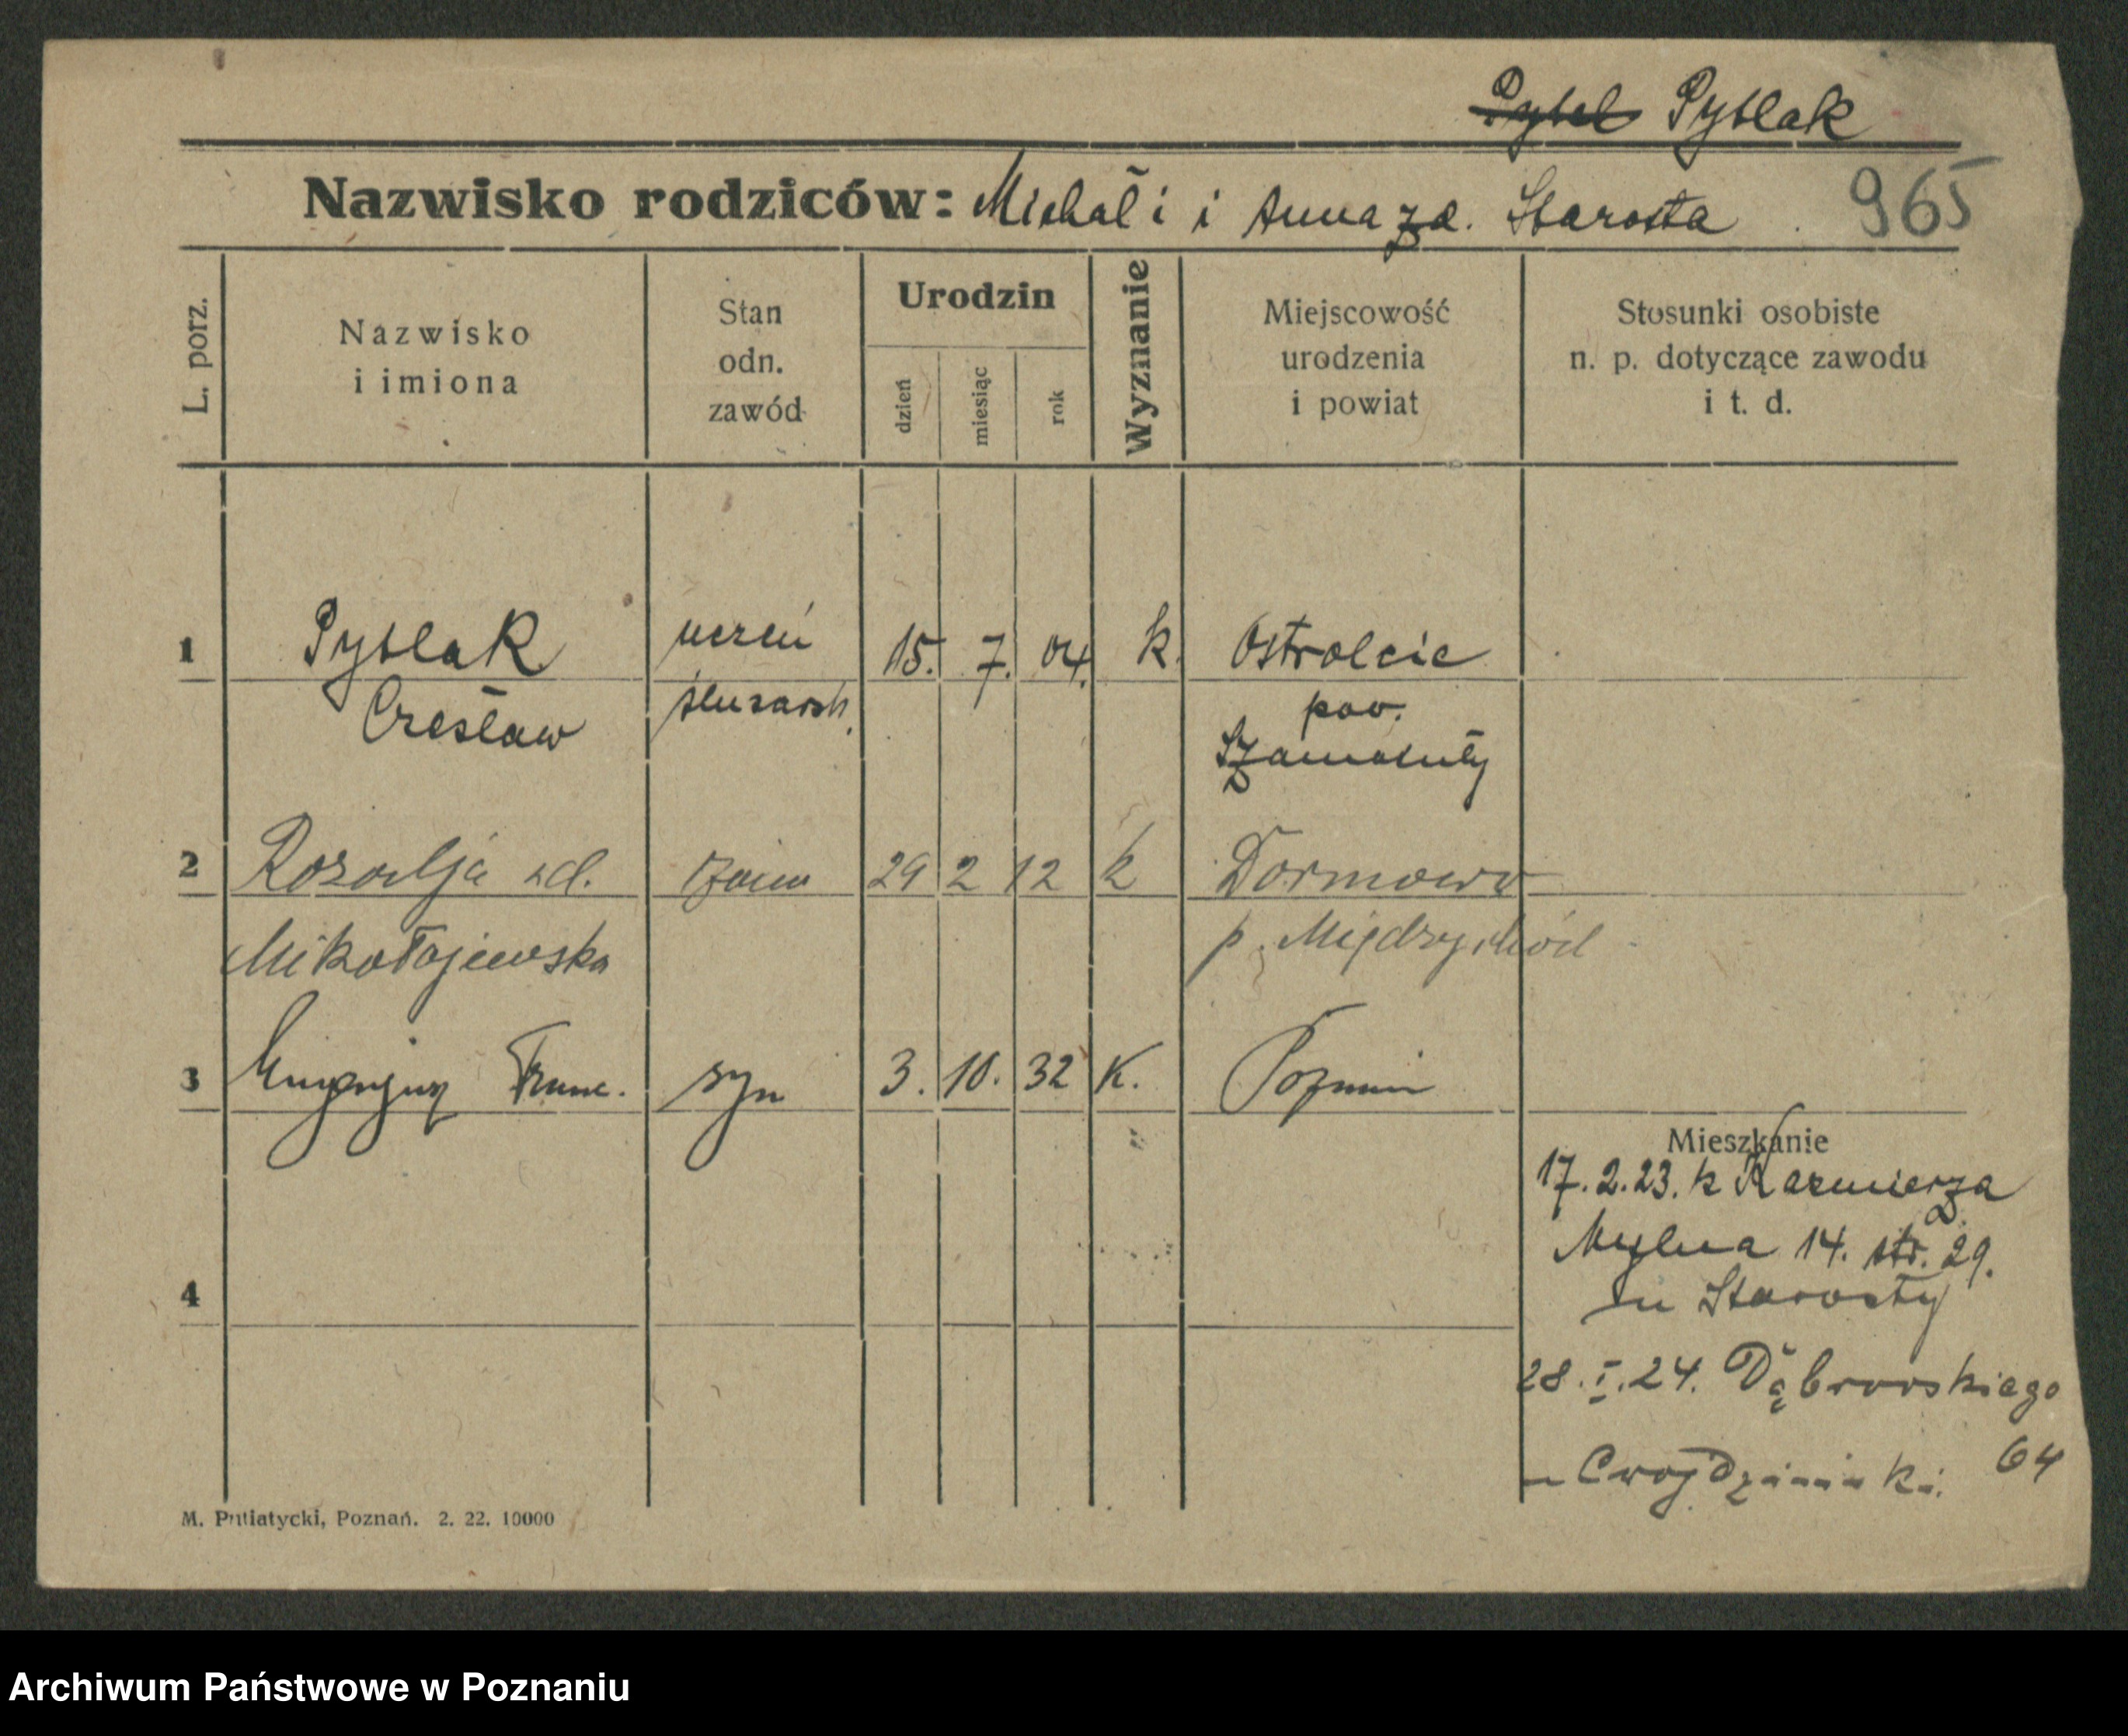 Pytel Pytlak
Nazwisko rodziców: Michał i i Anna zd. Starosta 965
L. porz.
Nazwisko
i imiona
Stan
odn.
zawód
Urodzin
dzień
miesiąc
rok
Wyznanie
Miejscowość
urodzenia
i powiat
Stosunki osobiste
n. p. dotyczące zawodu
i t. d.
1 Pytlak uczeń 15. 7. 04. k. Ostrolcie
Czesław ślusarsk. pow.
Szamotuły
2 Rozalja zd. żona 29 2 12 k Dormowo
Mikołajewska p. Międzychód
3 Franc. syn 3. 10. 32 K. Poznań
Mieszkanie
17.2.23. k Kazmierza
Mylna 14. str. 29.
u Starosty
28.I.24. Dąbrowskiego
64
4
M. Putiatycki, Poznań. 2. 22. 10000
Archiwum Państwowe w Poznaniu